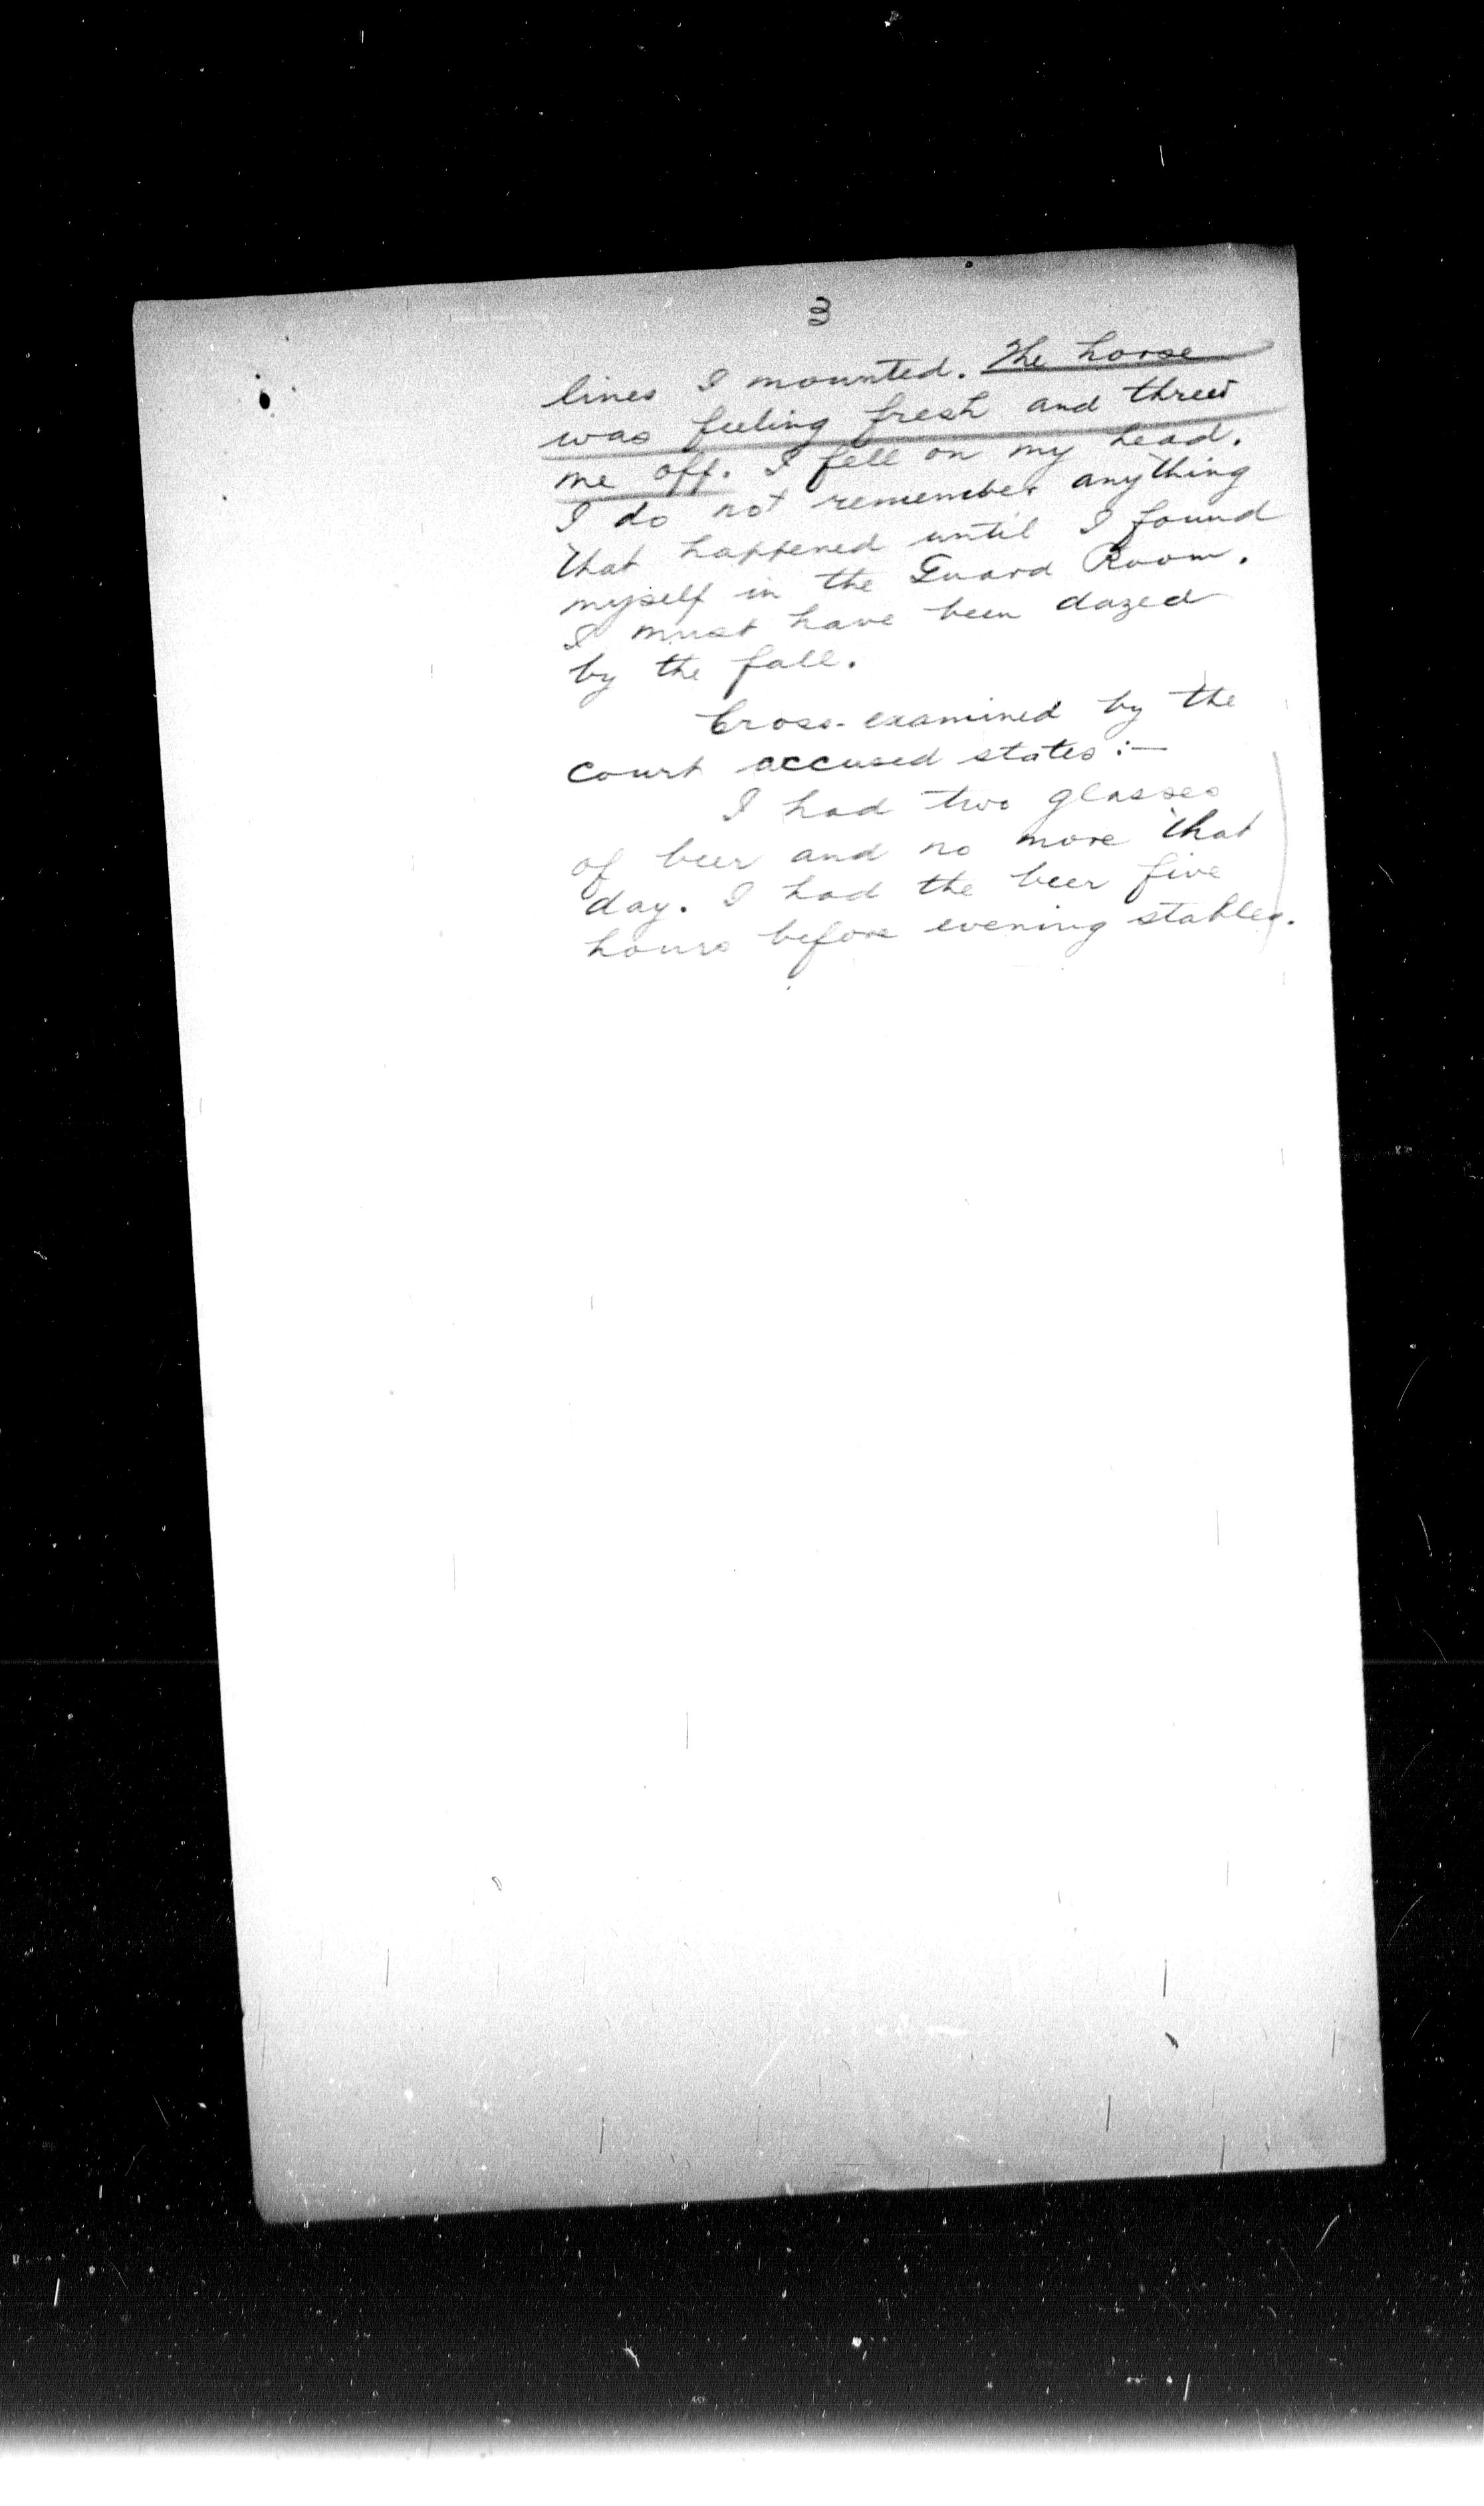 3
lines I mounted. The horse
was feeling fresh and threw
me off. I fell on my head.
I do not remember anything
that happened until I found
myself in the Guard Room.
I must have been dazed
by the fall.
Cross-examined by the
Court accused states:-
I had two glasses
of beer and no more that
day. I had the beer five
hours before evening stables.